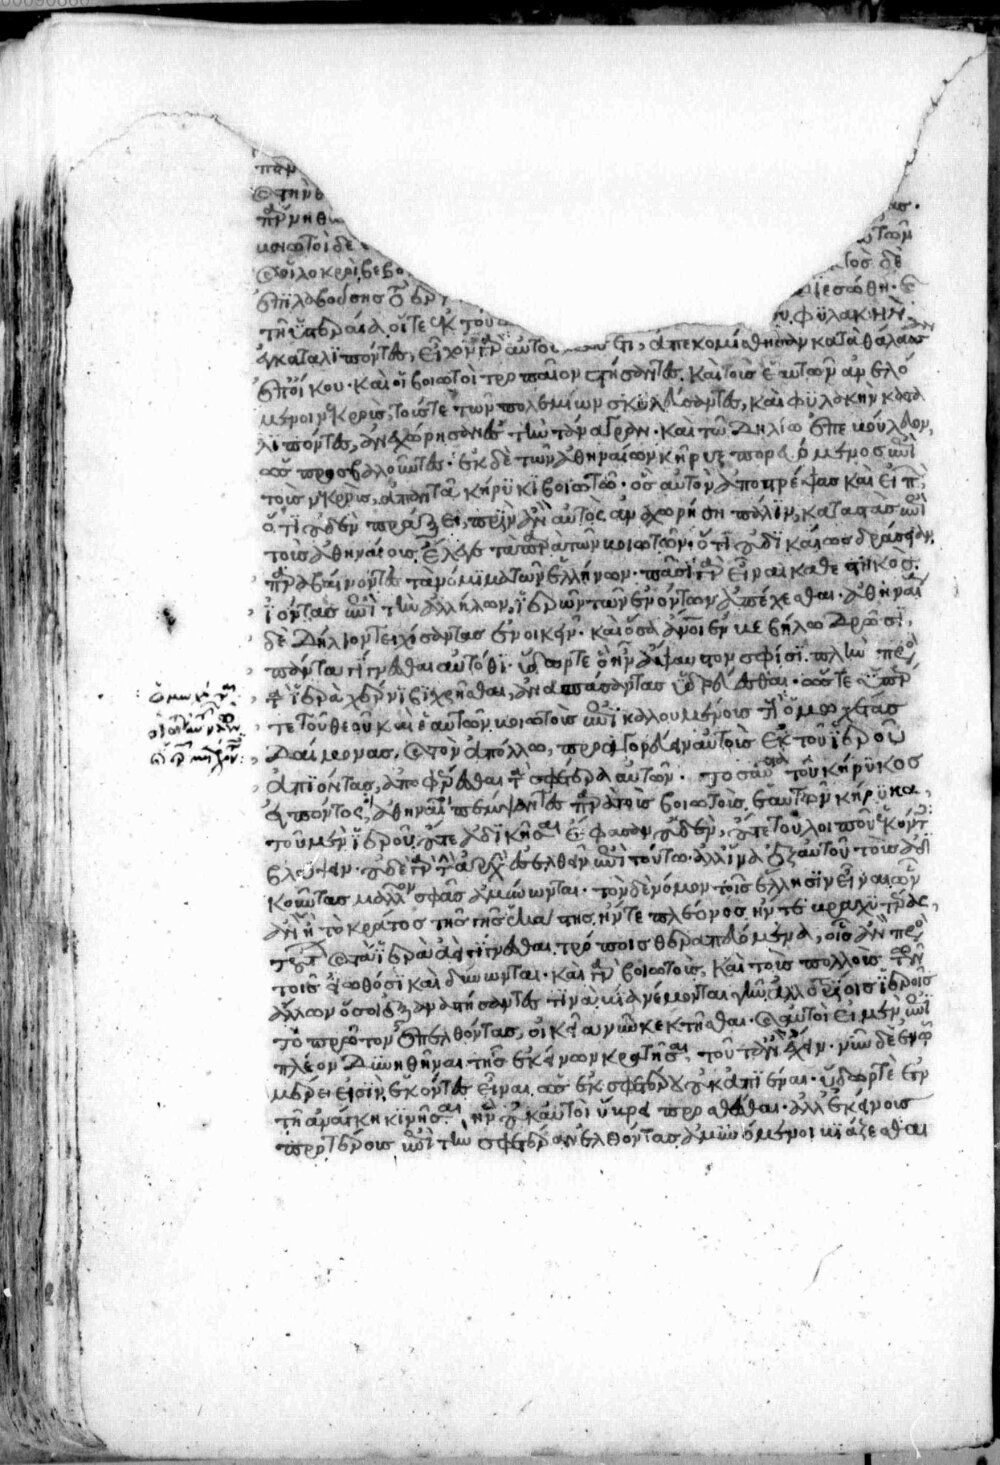 παρ
καὶ τὴν
παρανηθ
βοιωτοὶ δὲ
καὶ οἱ λοκροὶ βεβο
ἐπιλαβούσης τὸ ἔργ διεσώθη· καὶ
τῇ ὑστεραία οἵ τε ἐκ τοῦ φυλακὴν
ἐγκαταλϊπόντες, εἶχον γὰρ αὐτὸ ἔτι, ἀπεκομίσθησαν κατὰ θάλασσαν
ἐπ' οἴκου· καὶ οἱ βοιωτοὶ τροπαῖον στήσαντες, καὶ τοὺς ἑαυτῶν ἀνελό
μενοι νεκροὺς, τούς τε τῶν πολεμίων σκυλεύσαντες, καὶ φυλακὴν κατα
λιπόντες, ἀνεχώρησαν ἐς τὴν τάναγραν· καὶ τῶ δηλίω ἐπεβούλευον,
ὡς προσβαλοῦντες· ἐκ δὲ τῶν ἀθηναίων κῆρυξ πορευόμενος ἐπὶ
τοὺς νεκροὺς, ἀπαντᾶ κήρυκι βοιωτῶ· ὃς αὐτὸν ἀποστρέψας καὶ εἰπὼν,
ὅτι οὐδὲν πράξει, πρὶν ἂν αὐτὸς ἀναχωρήση πάλιν, καταστὰς ἐπὶ
τοὺς ἀθηναίους, ἔλεγε τὰ παρὰ τῶν βοιωτῶν· ὅτι οὐ δικαίως δράσειαν,
παραβαίνοντες τὰ νόμιμα τῶν ἑλλήνων· πᾶσι γὰρ εἶναι καθεστηκὸς,
ἰόντας ἐπὶ τὴν ἀλλήλων, ἱερῶν τῶν ἐνόντων ἀπέχεσθαι· ἀθηναίους
δὲ δήλιον τειχίσαντας ἐνοικεῖν· καὶ ὅσα ἄνθρωποι ἐν βεβήλω δρῶσι,
πάντα γίγνεσθαι αὐτόθι· ὕδωρ τε ὃ ἦν ἄψαυστον σφίσι πλὴν πρὸς
τὰ ἱερὰ χέρνιβι χρῆσθαι, ἀνασπάσαντας ὑδρεύεσθαι· ὥστε ὑπέρ
τε τοῦ θεοῦ καὶ ἑαυτῶν βοιωτοὺς ἐπικαλουμένους τοὺς ὁμωχέτας
δαίμονας, καὶ τὸν ἀπόλλω, προαγορεύειν αὐτοὺς ἐκ τοῦ ἱεροῦ
ἀπιόντας, ἀποφέρεσθαι τὰ σφέτερα αὐτῶν· τοσαῦτα τοῦ κήρυκος
εἰπόντος, ἀθηναῖοι πέμψαντες παρὰ τοὺς βοιωτοὺς ἑαυτῶν κήρυκα,
τοῦ μὲν ἱεροῦ οὔτε ἀδικῆσαι ἔφασαν οὐδὲν, οὔτε τοῦ λοιποῦ ἑκόντες
βλάψειν· οὐδὲ γὰρ τὴν ἀρχὴν ἐσελθεῖν ἐπὶ τούτω· ἀλλ' ἵνα ἐξ αὐτοῦ τοὺς ἀδι
κοῦντας μᾶλλον σφᾶς ἀμύνωνται· τὸν δὲ νόμον τοῖς ἕλλησιν εἶναι, ὧν
ἂν ἦ τὸ κράτος τῆς γῆς ἑκάστης, ἤν τε πλέονος, ἤν τε βραχυτέρας,
τούτων καὶ τὰ ἱερὰ ἀεὶ γίγνεσθαι, τρόποις θεραπευόμενα, οἷς ἂν πρὸς
τοῖς εἰωθόσι καὶ δύνωνται· καὶ γὰρ βοιωτοὺς, καὶ τοὺς πολλοὺς τῶν
ἄλλων ὅσοι ἐξαναστήσαντές τινα βία νέμονται γῆν, ἀλλοτρίοις ἱεροῖς
τὸ πρῶτον ἐπελθόντας, οἰκεῖα νῦν κεκτῆσθαι· καὶ αὐτοὶ εἰ μὲν ἐπὶ
πλέον δυνηθῆναι τῆς ἐκείνων κρατῆσαι, τοῦτ' ἂν ἔχειν· νῦν δὲ ἐν ὧ
μέρει εἰσὶν, ἑκόντες εἶναι ὡς ἐκ σφετέρου οὐκ ἀπιέναι· ὕδωρ τε ἐν
τῆ ἀνάγκη κινῆσαι, ἣν οὐκ αὐτοὶ ὕβρει προσθέσθαι· ἀλλ' ἐκείνους
προτέρους ἐπὶ τὴν σφετέραν ἐλθόντας ἀμυνόμενοι βιάζεσθαι